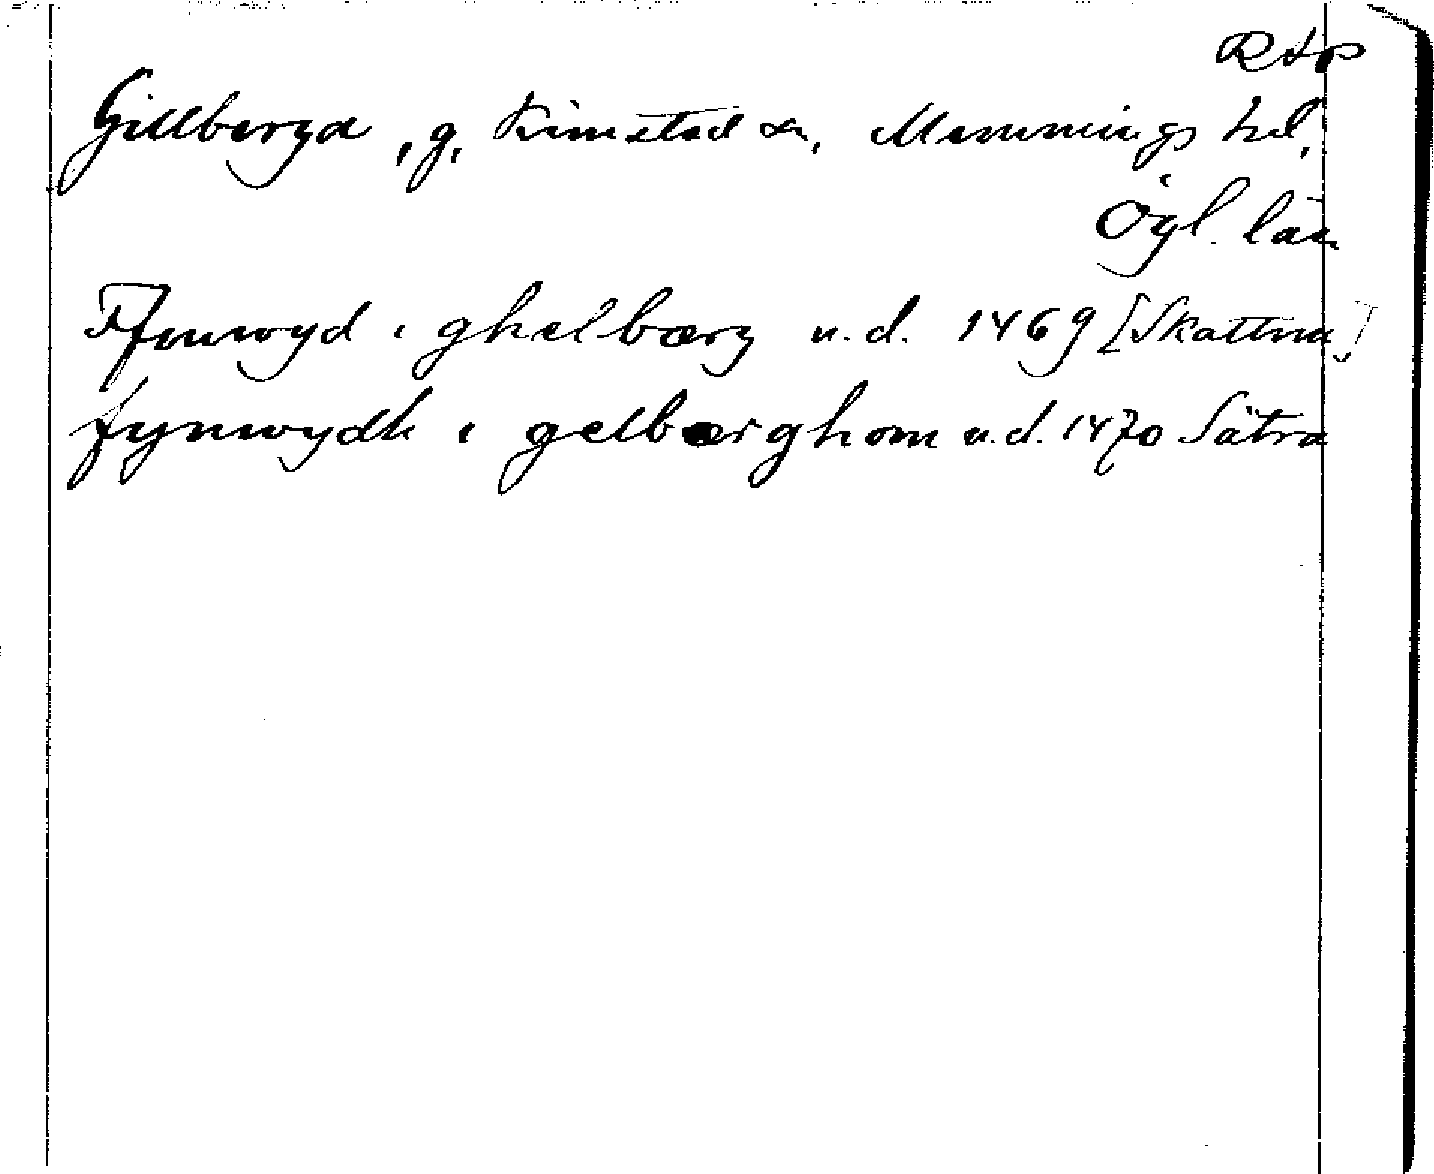 RAP
Gillberga, g, Kimstad sn, Memmings hd,
Ögl. län
Ffinwyd i ghelbærg u.d. 1469 [Skattna]
fynwydh i gelbærghom u.d. 1470 Sätra